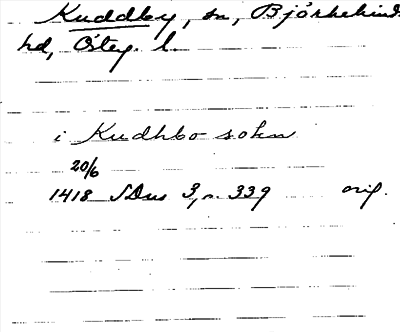 Kuddby, sn, Björkekinds
hd, Östg. l.
i Kudhbo sokn
20/6
1418 SDns 3, n. 339 orig.